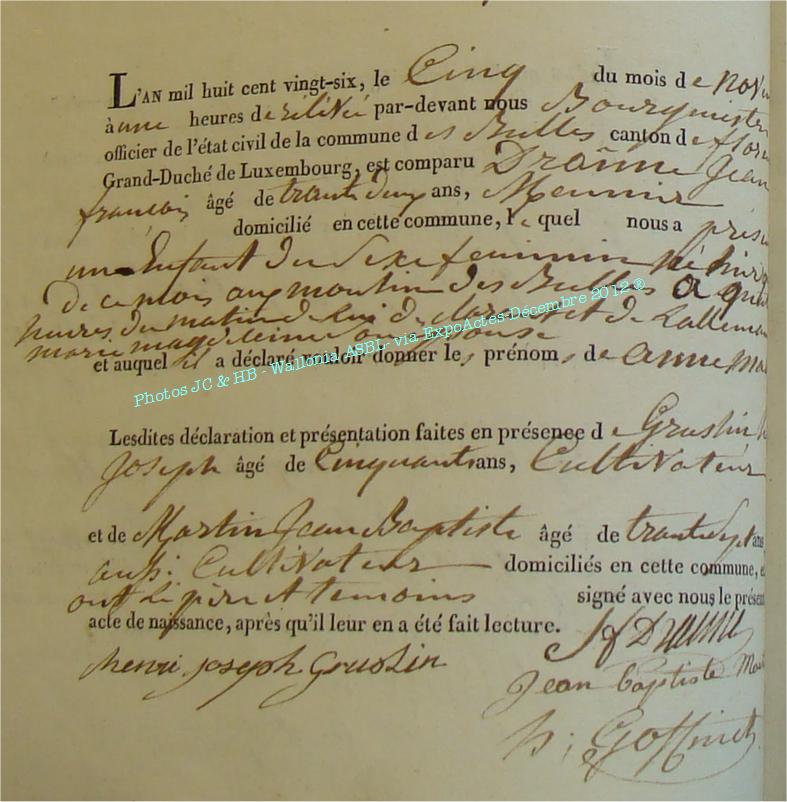 L'AN mil huit cent vingt-six, le Cinq du mois de nov
à une heures de relivée par-devant nous Bourgmestre
officier de l'état civil de la commune des Bulles canton de flor
Grand-Duché de Luxembourg, est comparu Jean
francois âgé de trante deux ans, Meunier
domicilié en cette commune, le quel nous a prés
un Enfant du Sexe feminin né
de ce mois aux moulin des Bulles a
heures du matin de Lui déclarant et de Lalleman
marie magdeleine son Epouse
et auquel il a déclaré vouloir donner les prénoms de anne ma
Photos JC & HB - Wallonia ASBL- via ExpoActes-Décembre 2012 ®
Lesdites déclaration et présentation faites en présence de Gruslin h
Joseph âgé de Cinquante ans, Cultivateur
et de Martin Jean Baptiste âgé de trante Sept ans
aussi Cultivateur domiciliés en cette commune, e
ont Le père et temoins signé avec nous le présent
acte de naissance, après qu'il leur en a été fait lecture.
henri joseph Gruslin
Jean baptiste Mar
h; Goffinet